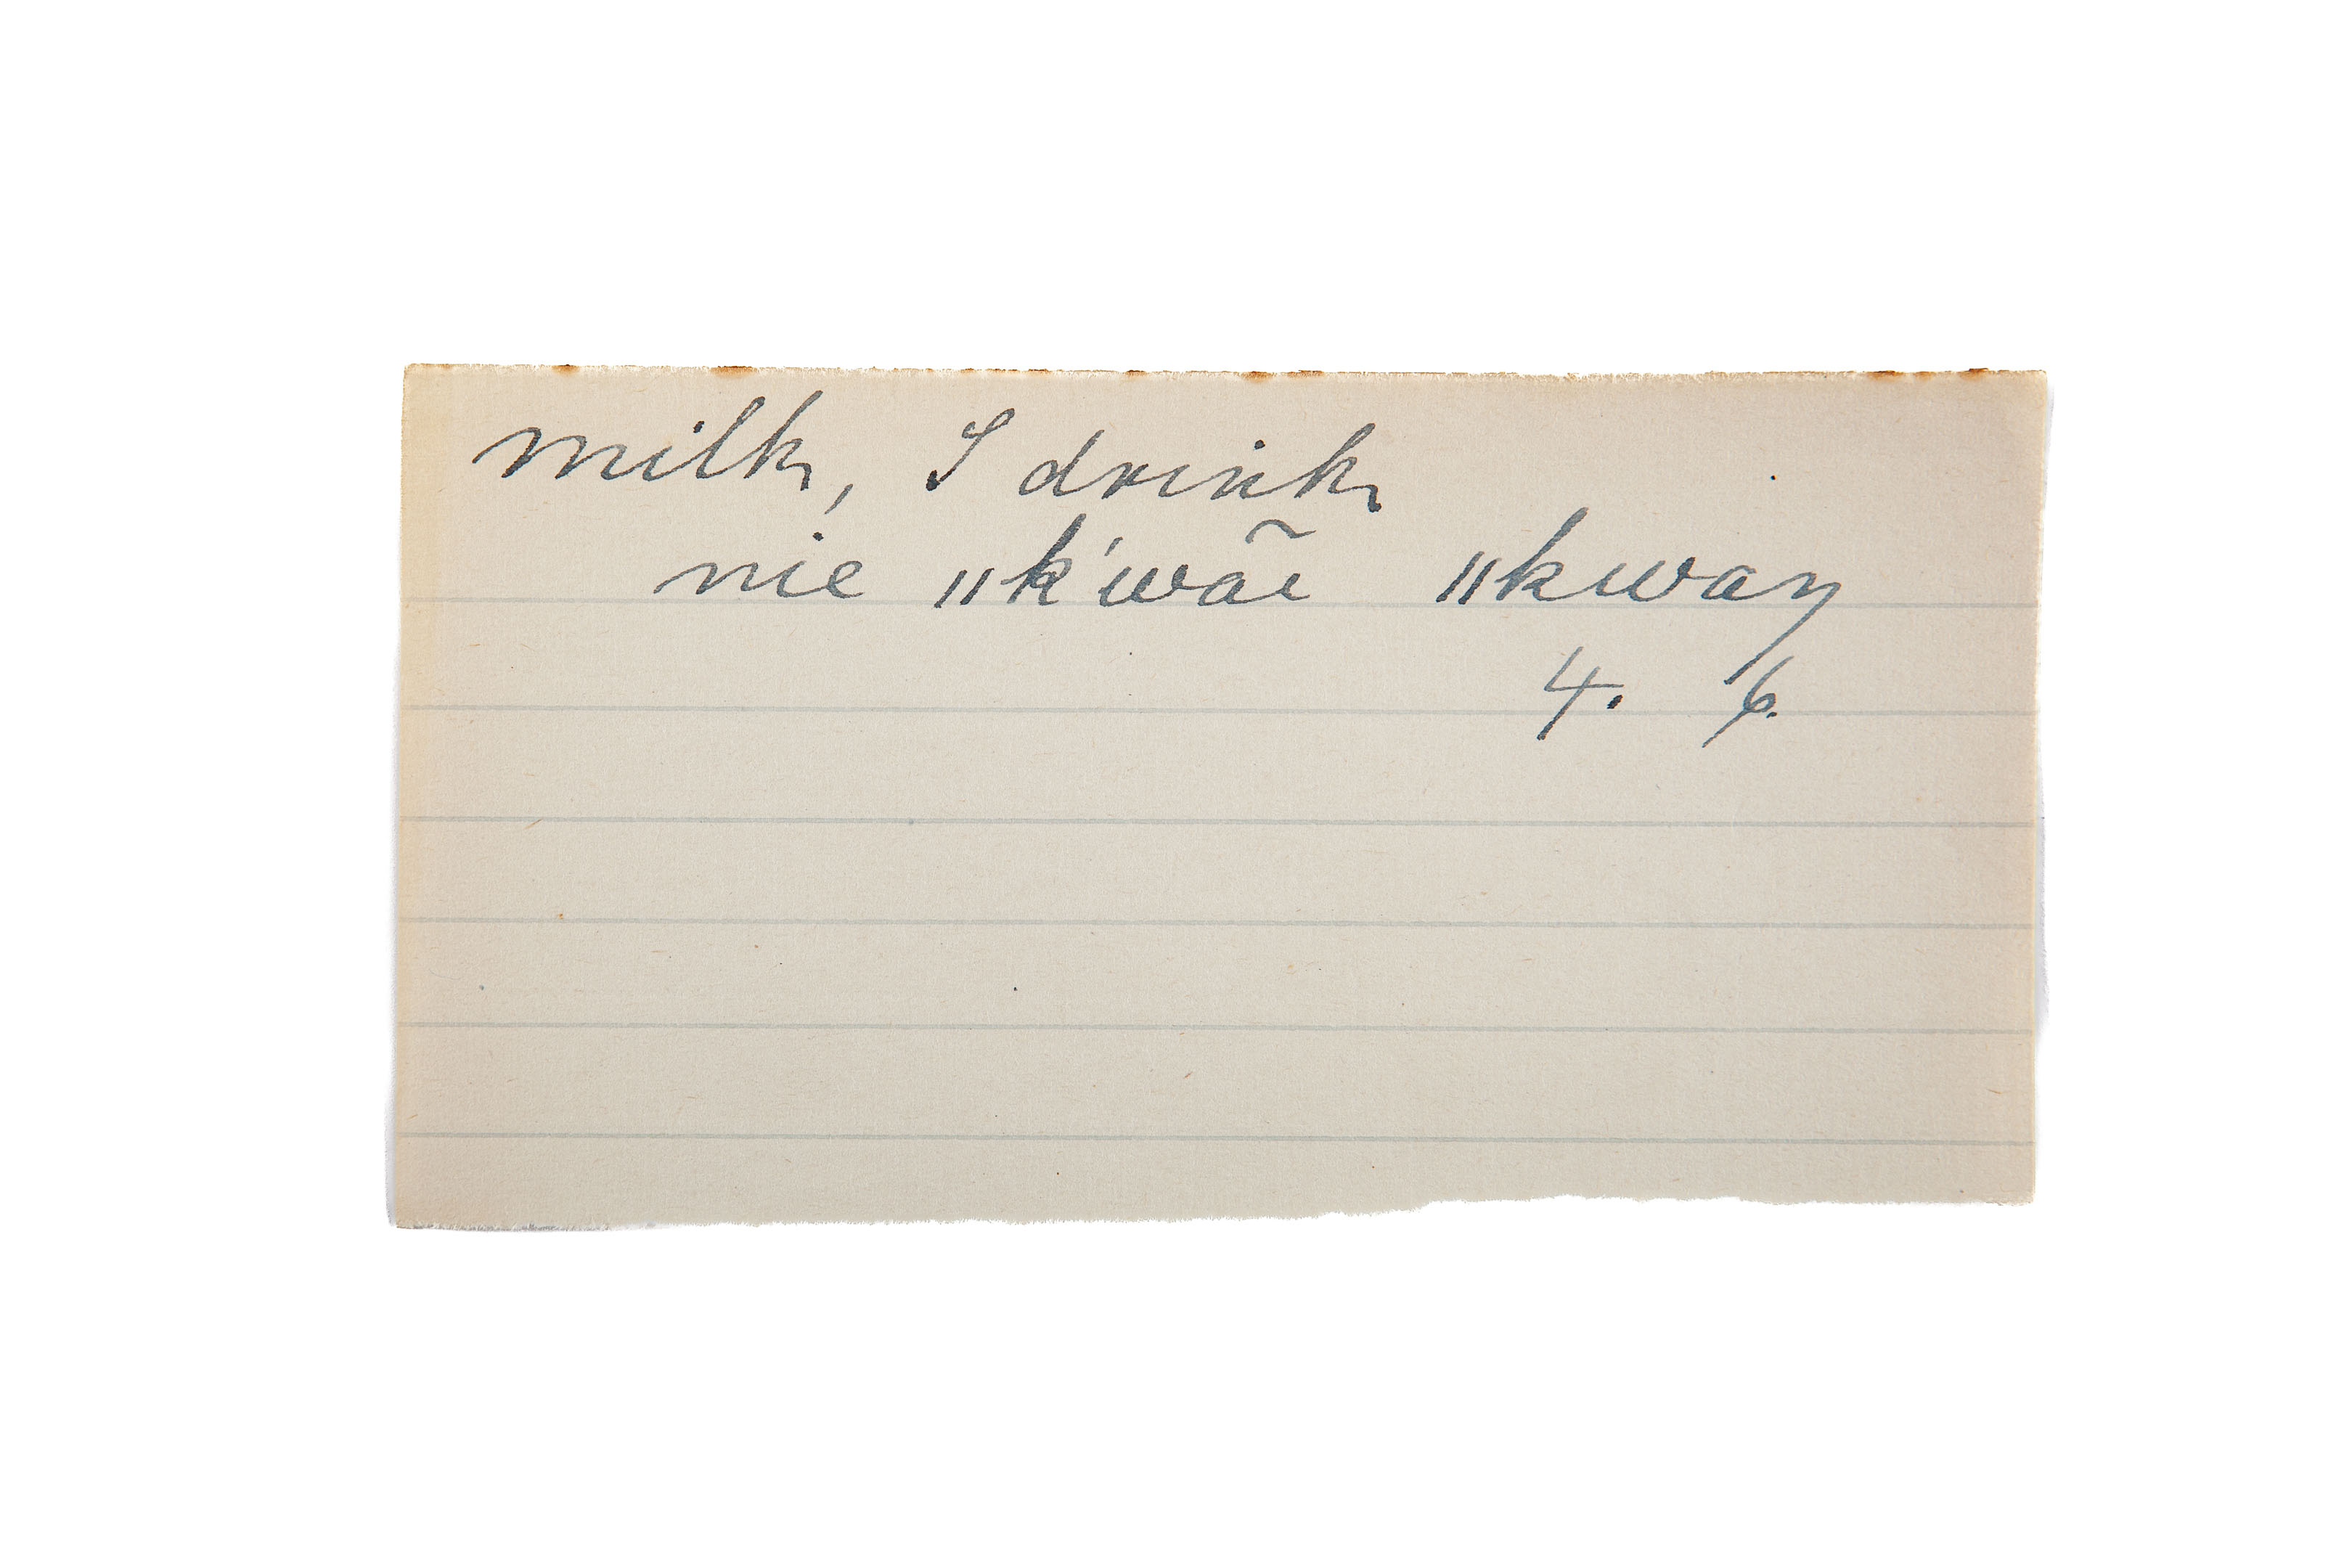 milk, I drink
nie ǁk'wãe ǁkwaŋ
4. 6.